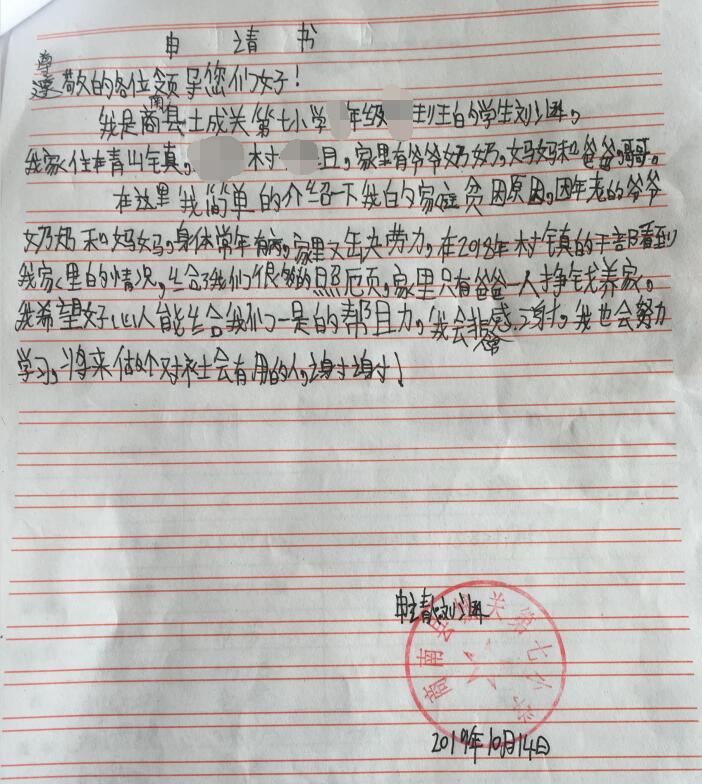 申请书
尊
敬的各位领导您们好!
南
我是商县城关第七小学 年级 班的学生刘
我家住在青山镇, 村 组,家里有爷爷奶奶,妈妈和爸爸,哥哥。
在这里我简单的介绍一下我的家庭贫困原因,因年老的爷爷
奶奶和妈妈,身体常年有病,家里又缺劳力,在2018年村镇的干部看到
我家里的情况,给了我们很多的照顾,家里只有爸爸一人挣钱养家。
我希望好心人能给我们一定的帮助,我会非感谢。我也会努力
常
学习,将来做个对社会有用的人,谢谢!
申请:刘
商南县城关第七小学
2019年10月14日